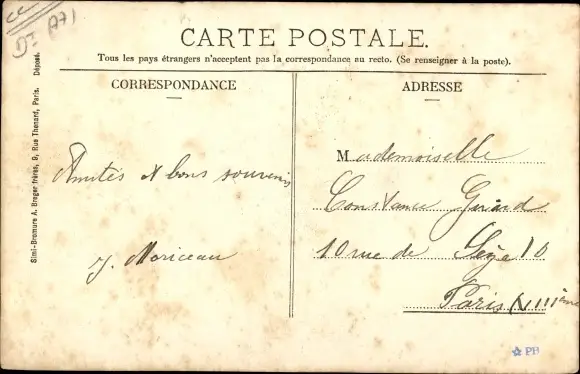 CARTE POSTALE.
Tous les pays étrangers n'acceptent pas la correspondance au recto. (Se renseigner à la poste).
CORRESPONDANCE
Amitiés & bons souvenirs
J. Moriceau
ADRESSE
Mademoiselle
Constance Girard
10 rue de 10
Paris XVIIIème
Simi-Bromure A. Breger frères, 9, Rue Thénard, Paris. Déposé.
PB